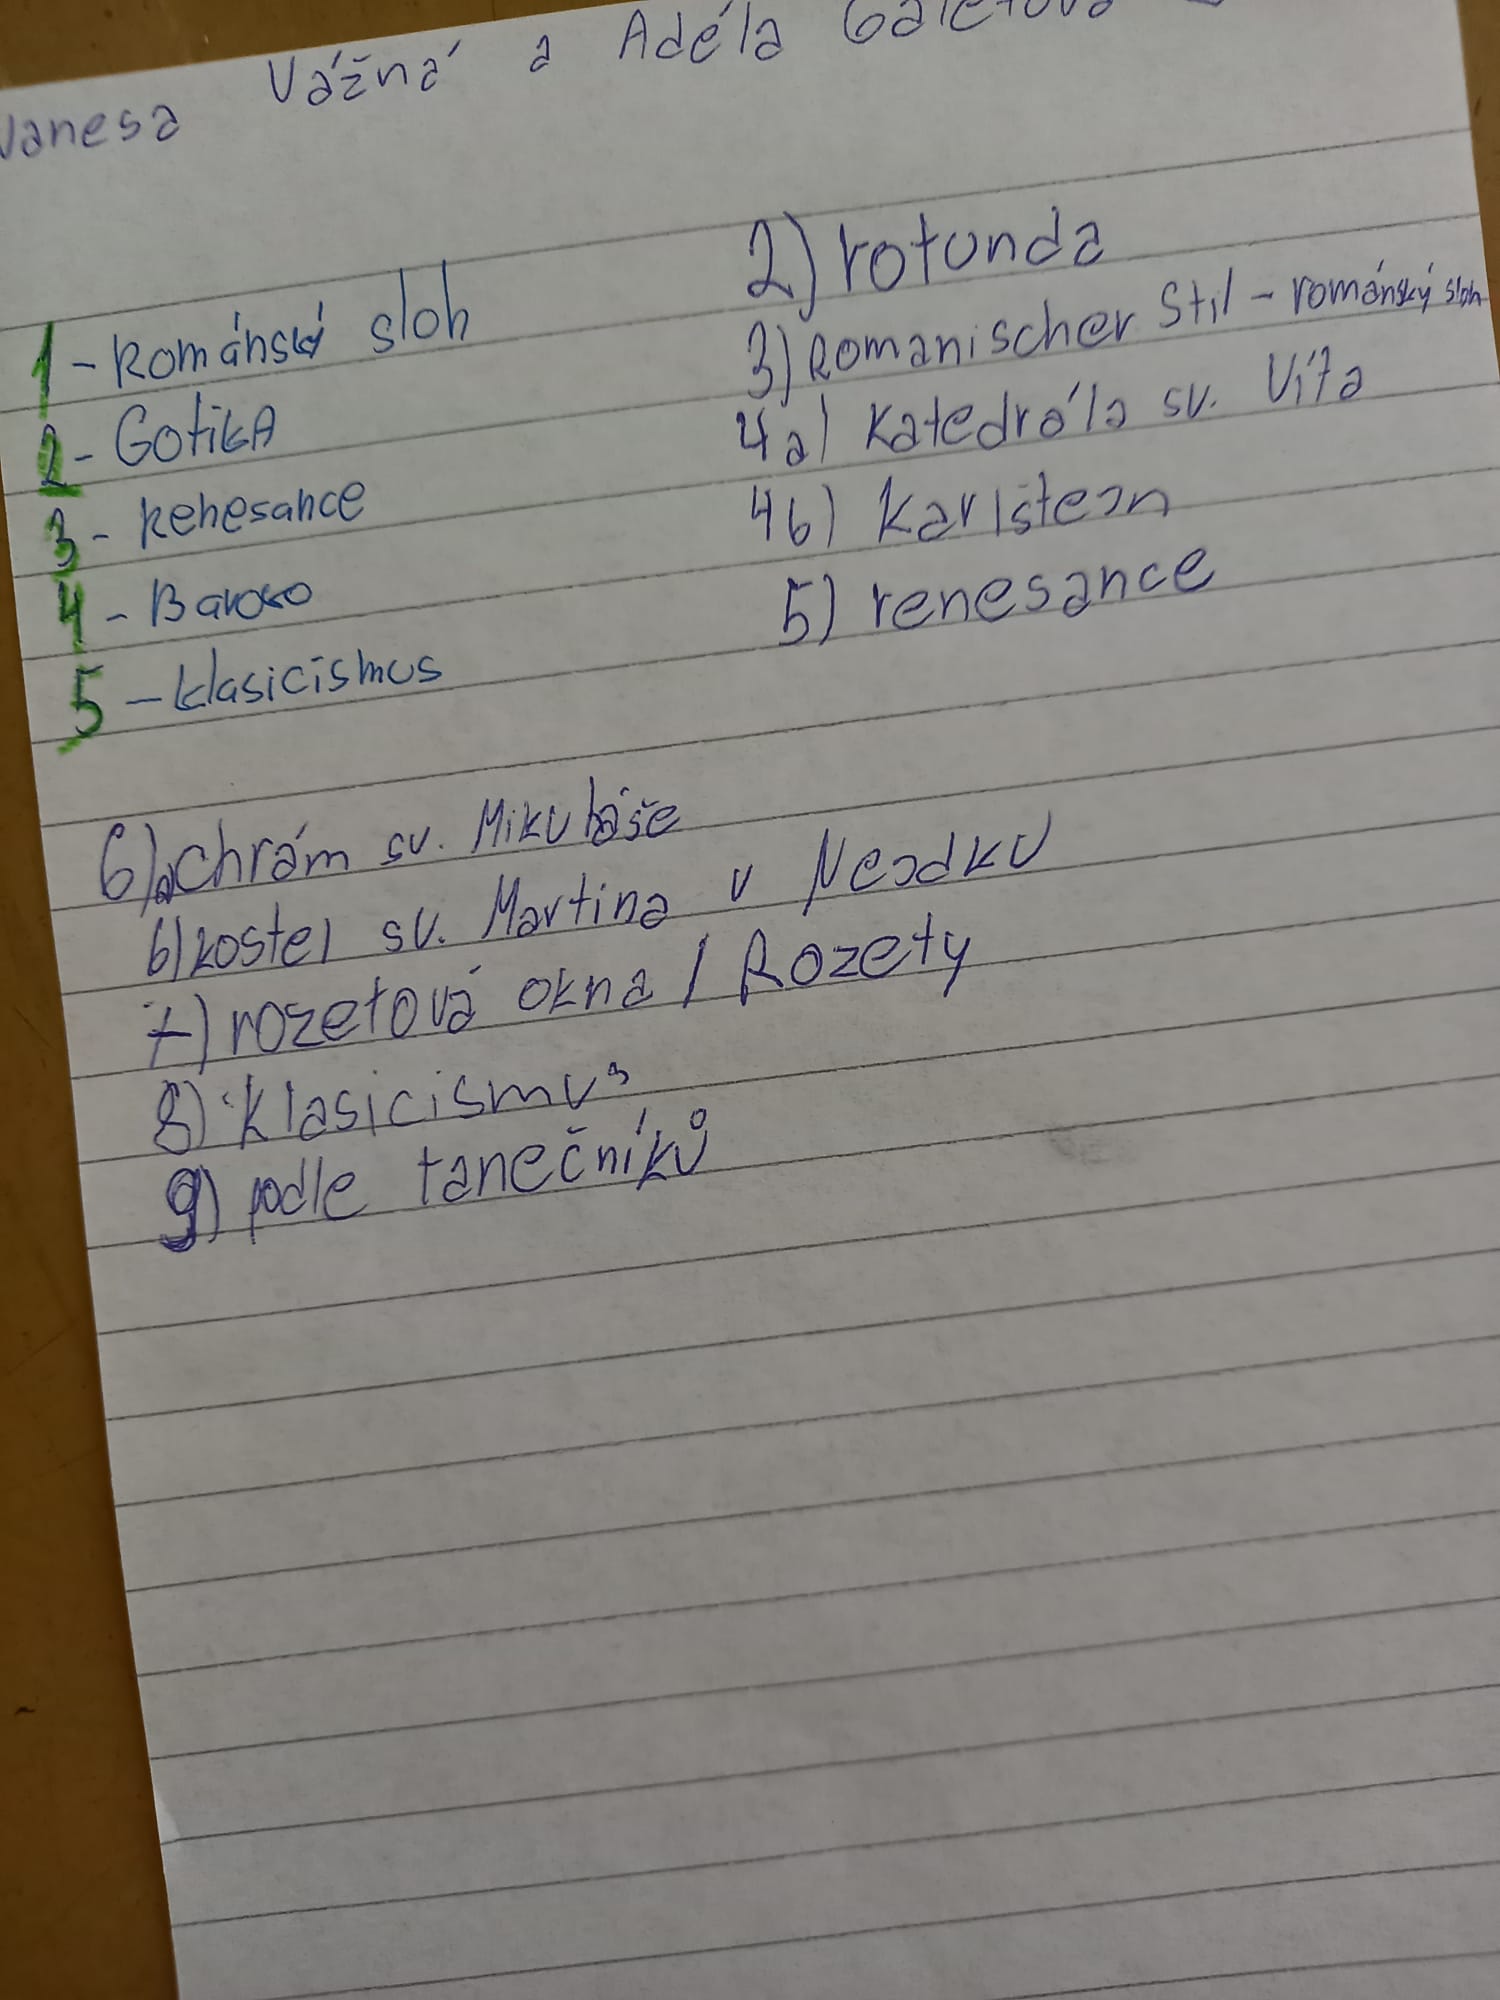 Vanesa Vážná a Adéla Galetová
1 - Románský sloh
2 - Gotika
3 - Renesance
4 - Baroko
5 - klasicismus
2) rotunda
3) Romanischer Stil - románský sloh
4a) Katedrála sv. Víta
4b) Karlštejn
5) renesance
6) a chrám sv. Mikuláše
b) kostel sv. Martina v Nejdku
7) rozetová okna / Rozety
8) klasicismus
9) podle tanečníků